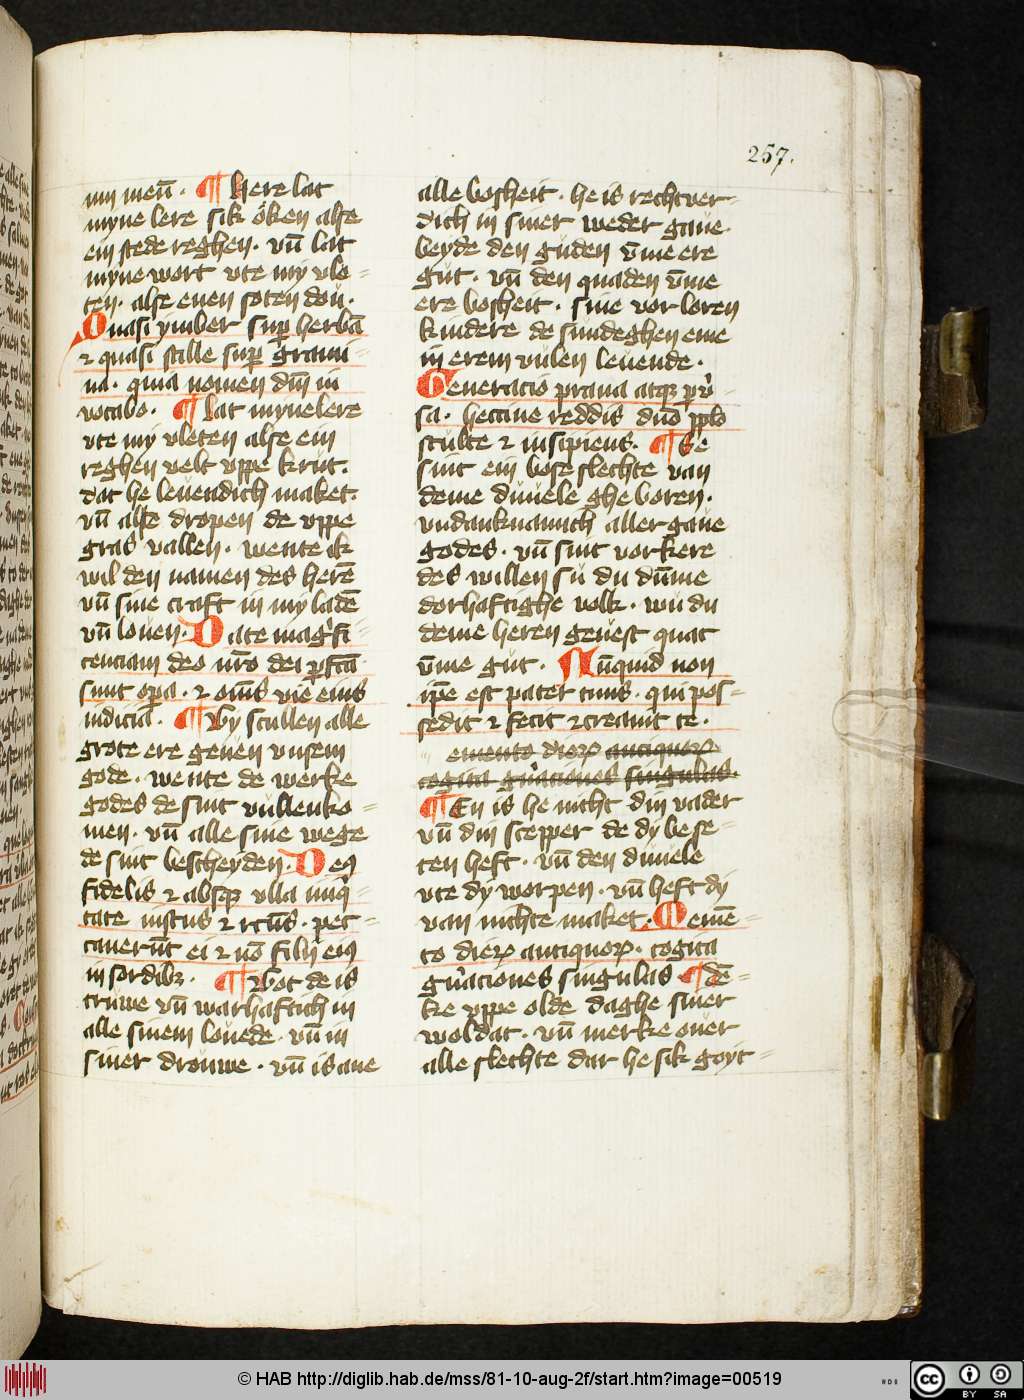 257.
mī meū̄. ¶ Here lat
myne lere sik öken alse
ein stede reghen. vn̄ lat
myne wort vte my vle=
ten. alse euen soten doū.
Quasi ymber suꝑ herbā
⁊ quasi stille suꝑ grami=
na. quia nomen dn̄i in
vocabo. ¶ Lat myne lere
vte my vleten alse ein
reghen velt vppe krut.
dat he leuendich maket.
vn̄ alse dropen de vppe
gras vallen. wente ik
wil den namen des herē
vn̄ sine craft in my ladē
vn̄ louen. Date mag̍fi=
cenciam deo nr̄o dei ꝑfctā
sunt oꝑa. ⁊ om̄s vie eius
iudicia. ¶ Wy scullen alle
grote ere geuen vnsem
gode. wente de werke
godes de sint vullenko=
men. vn̄ alle sine wege
de sint bescheyden. Deꝰ
fidelis ⁊ absqꝫ vlla iniq̍=
tate iustus ⁊ rc̄tus. pec=
cauerūt ei ⁊ nō filij eiꝰ
in sordibꝫ. ¶ Got de is
truwe vn̄ warhaftich in
alle sinem louede. vn̄ in
siner drouwe. vn̄ is ane
alle bosheit. he is rechtuer
dich in siner weder gaue.
beyde den guden v̄me ere
gut. vn̄ den quaden v̄me
ere bosheit. sine vorloren
kindere de sundeghen eme
in erem vulen leuende.
Generacio praua atqꝫ ꝑu̍=
sa. heccine reddis dn̄o pplo
stulte ⁊ insipiens. ¶ Ge
sint ein bose slechte van
deme duuele gheboren.
vndanknamich aller gaue
godes. vn̄ sint vorkere
des willen su du dūme
dorhaftighe volk. wu du
deme heren geuest quat
v̄me gut. Nūquid non
ip̄e est pater tuus. qui pos=
sedit ⁊ fecit ⁊ creauit te.
emento dieꝝ antiquoꝝ
cogita gn̄aciones singulas.
¶ En is he nicht din vader
vn̄ din scepper de dy bese=
ten heft. vn̄ den duuele
vte dy worpen. vn̄ heft dy
van nichte maket. Memē=
to dieꝝ antiquoꝝ. cogita
gn̄aciones singulas ¶ dē=
ke vppe olde daghe siner
woldat. vn̄ merke ouer
alle slechte dar he sik goyt=
© HAB http://diglib.hab.de/mss/81-10-aug-2f/start.htm?image=00519
HAB
cc BY SA